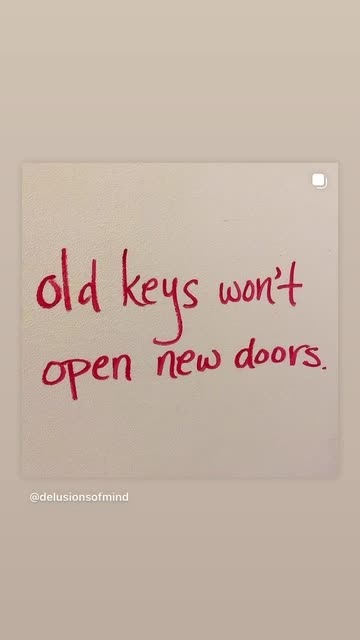 old keys won't
open new doors.
@delusionsofmind